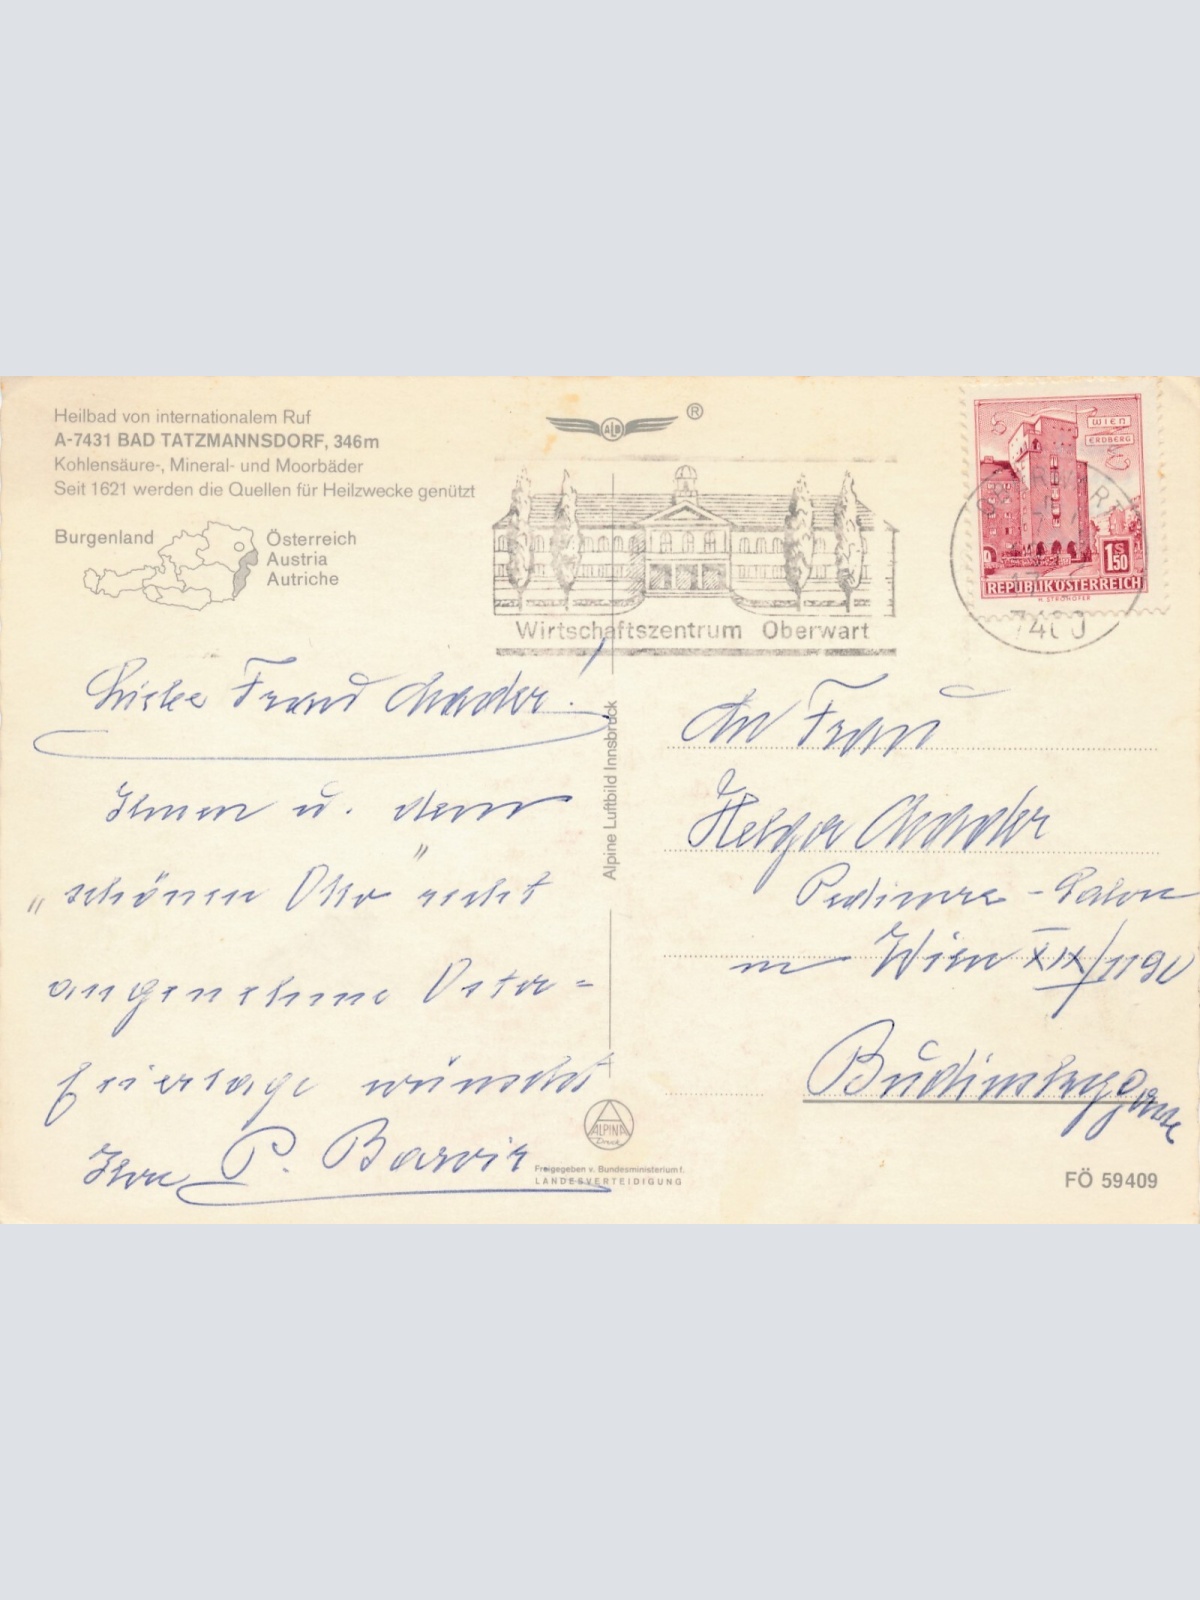 Heilbad von internationalem Ruf
A-7431 BAD TATZMANNSDORF, 346m
Kohlensäure-, Mineral- und Moorbäder
Seit 1621 werden die Quellen für Heilzwecke genützt
Burgenland
Österreich
Austria
Autriche
ALB
®
Wirtschaftszentrum Oberwart
WIEN
ERDBERG
1S50
REPUBLIK ÖSTERREICH
OBERWART
7400
Liebe Frau Mader!
Ihnen u. dem
„schönen Otto" recht
angenehme Oster=
feiertage wünscht
Ihre P.
Alpine Luftbild Innsbruck
ALPINA
Druck
Freigegeben v. Bundesministerium f.
LANDESVERTEIDIGUNG
An Frau
Helga Mader
Pediküre - Salon
in Wien XIX/1190
FÖ 59409